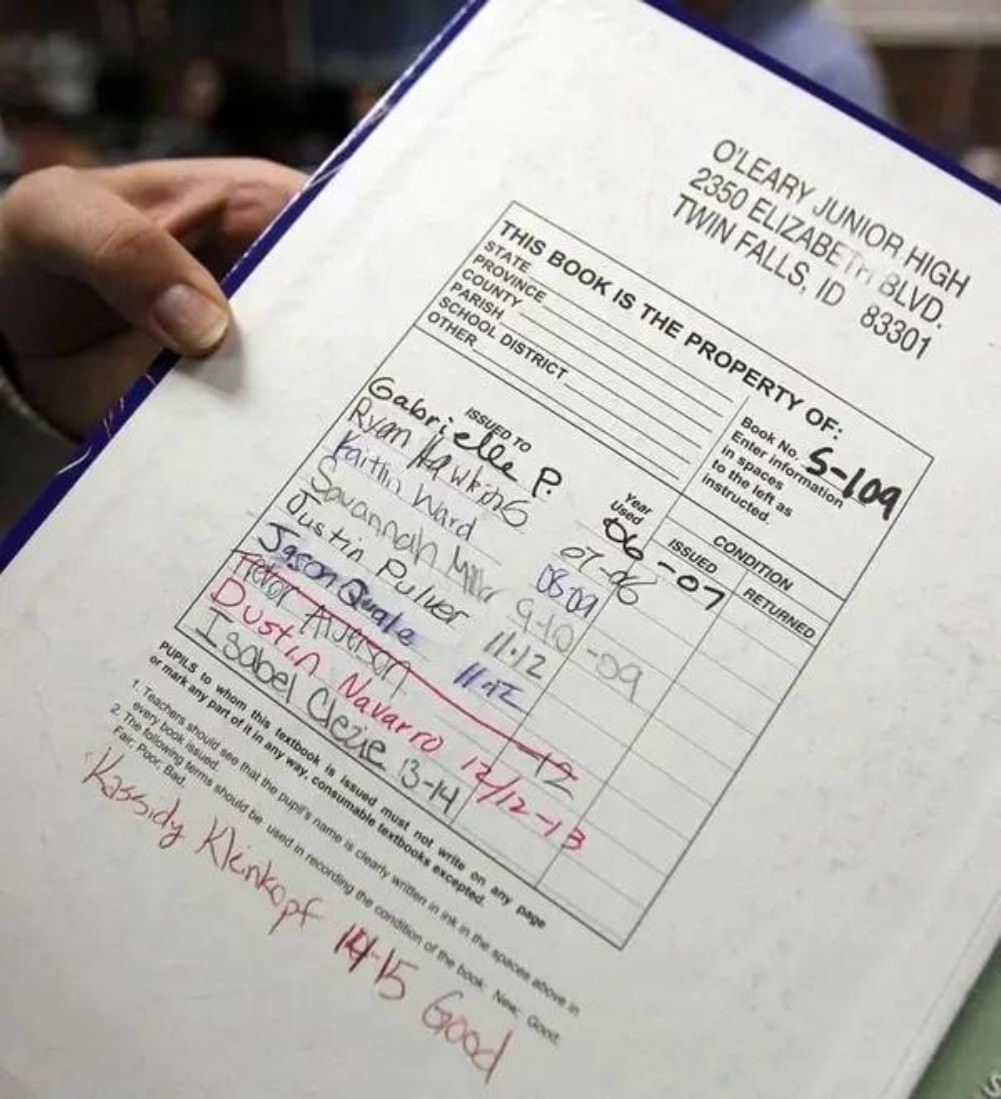 O'LEARY JUNIOR HIGH
2350 ELIZABETH BLVD.
TWIN FALLS, ID 83301
THIS BOOK IS THE PROPERTY OF:
STATE
PROVINCE
COUNTY
PARISH
SCHOOL DISTRICT
OTHER
Book No. S-109
Enter information
in spaces
to the left as
instructed.
ISSUED TO
Year
Used
CONDITION
ISSUED
RETURNED
Gabrielle P. 06-07
Ryan Hawking 07-06
Kaitlin Ward 08 09
Savannah Miller 9-10 -09
Justin Pulver 11-12
Jason Quale 11-12
Trevor -12
Dustin Navarro 12/12-13
Isabel Clezie 13-14
PUPILS to whom this textbook is issued must not write on any page
or mark any part of it in any way, consumable textbooks excepted.
1. Teachers should see that the pupil's name is clearly written in ink in the spaces above in
every book issued.
2. The following terms should be used in recording the condition of the book: New; Good;
Fair; Poor; Bad.
Kassidy Kleinkopf 14-15 Good